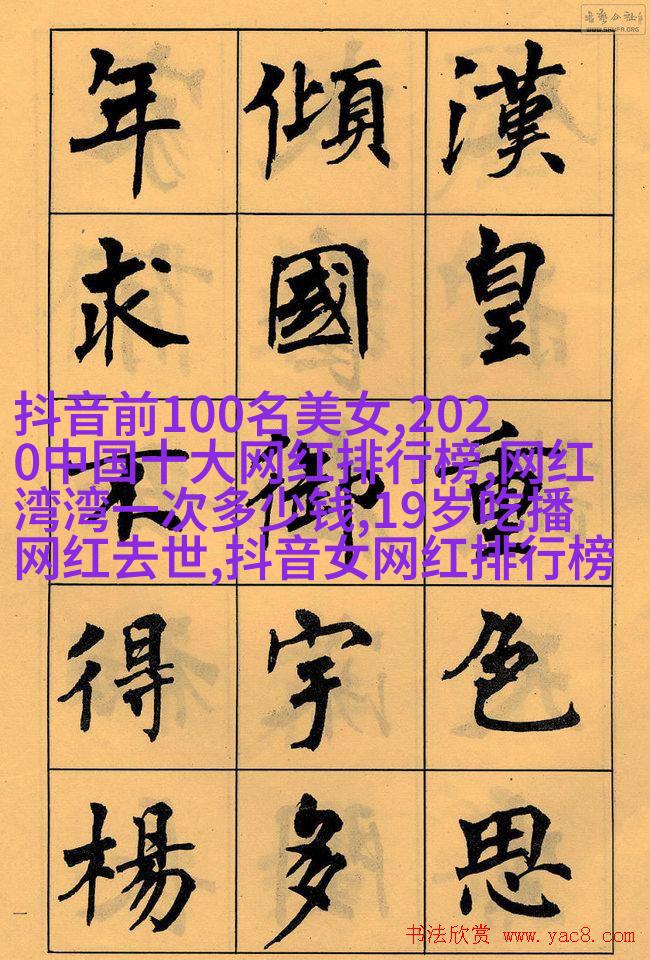 WWW.SHUFA.ORG
漢皇重色思
傾國御宇多
年求不得楊
抖音前100名美女,202
0中国十大网红排行榜,网红
湾湾一次多少钱,19岁吃播
网红去世,抖音女网红排行榜
一
书法欣赏 www.yac8.com